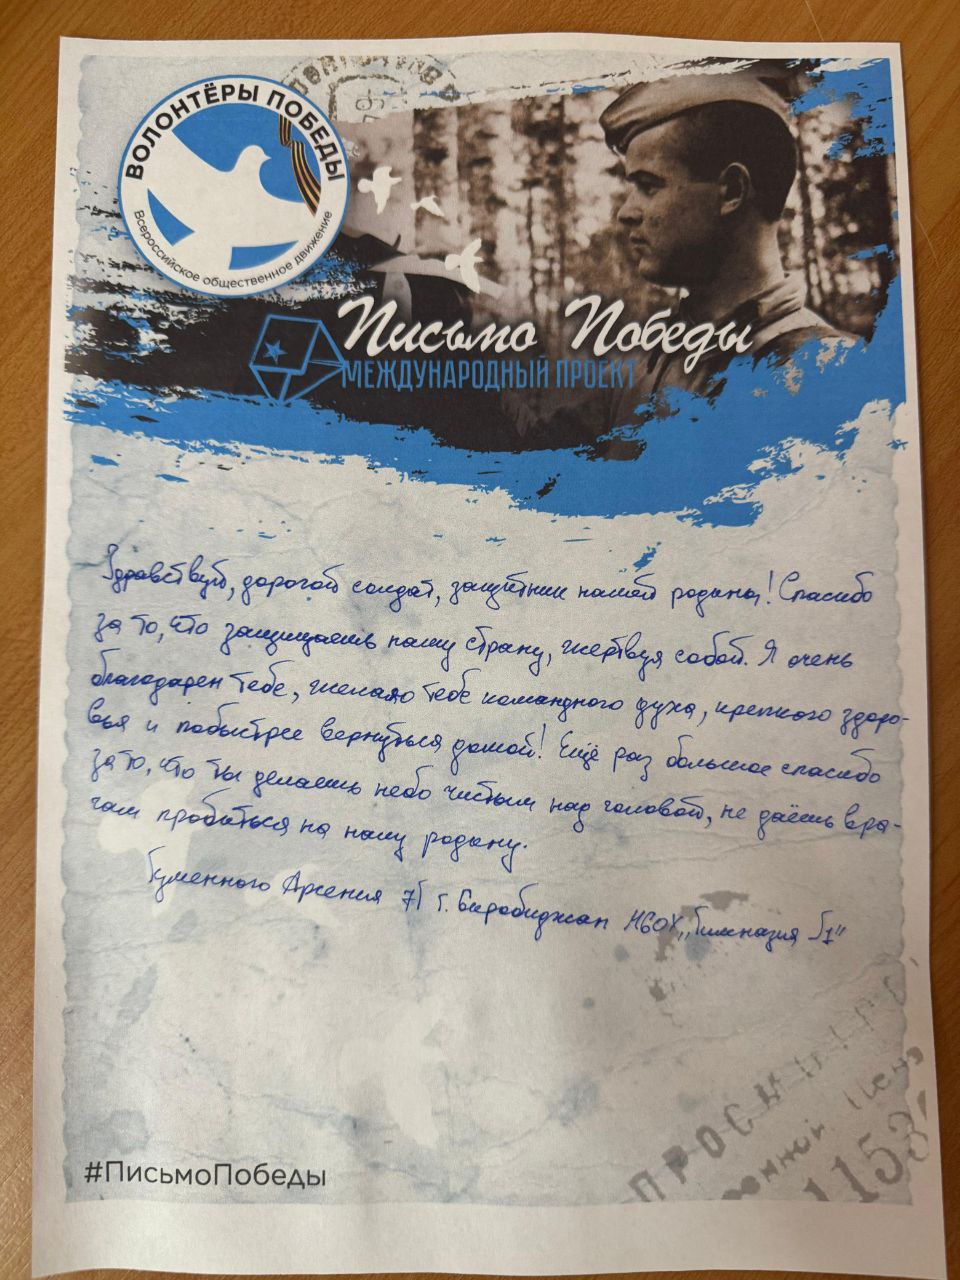 ВОЛОНТЁРЫ ПОБЕДЫ
Всероссийское общественное движение
Письмо Победы
МЕЖДУНАРОДНЫЙ ПРОЕКТ
Здравствуй, дорогой солдат, защитник нашей родины! Спасибо
за то, что защищаешь нашу страну, жертвуя собой. Я очень
благодарен тебе, желаю тебе командного духа, крепкого здоро-
вья и побыстрее вернуться домой! Ещё раз большое спасибо
за то, что ты делаешь небо чистым над головой, не даёшь вра-
гам пробиться на нашу родину.
Гуменного Арсения г. Биробиджан "Гимназия
#ПисьмоПобеды
ПРОС
1153